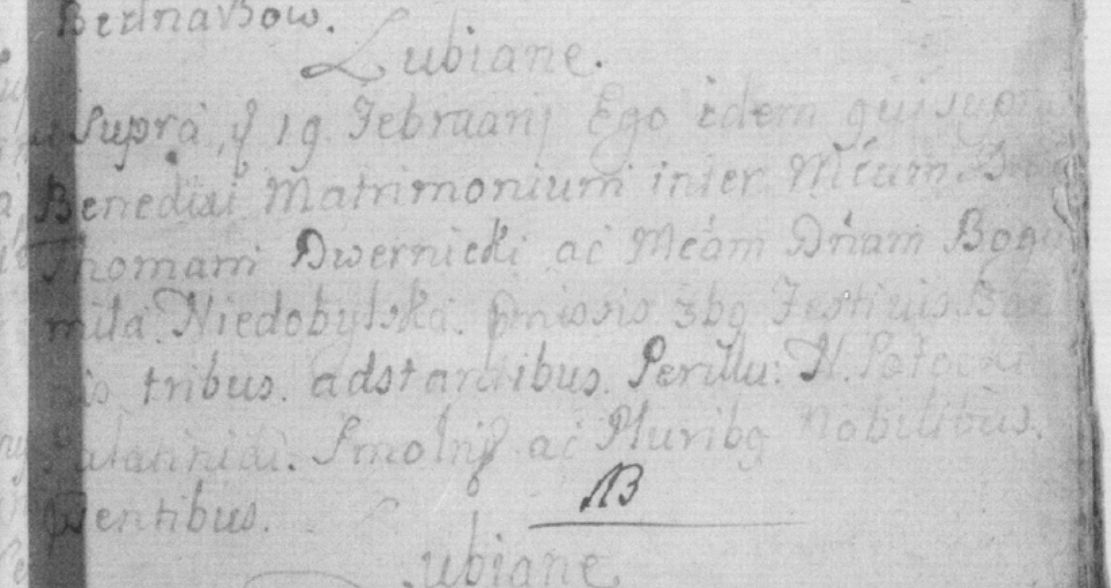 Bednarzow.
Lubiane.
Supra, 19 Februarij Ego idem qui supra
Benedixi Matrimonium inter Mćum
Thomam Dwernicki ac Mćam Dńam Bogu
miłá Niedobylská. pmissis 3bg Festiuis
tribus. adstantibus. Perillu: N. Potocki
Palatinidi. Smolnij ac Pluribg Nobilibus.
psentibus.
NB
Lubiane